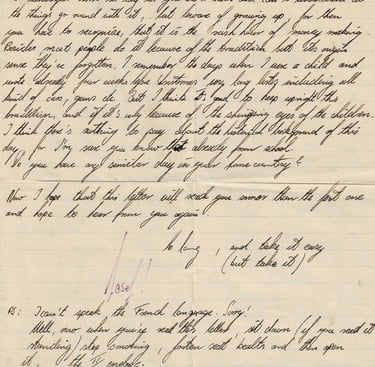 the things go round with it, but beware of growing up, for then
you have to recognise, that it is the rush hour of money making.
Besides most people do it because of the tradition but its origin
sense they've forgotten. I remember the days when I was a child and
wrote already four weeks before Christmas very long lists including all
kind of cars, guns etc. But I think it's good to keep upright this
tradition, and if it's only because of the shining eyes of the children.
I think there's nothing to say about the historical background of this
day, for I'm sure you know that already from school.
Do you have any similar day in your home country?
Now I hope that this letter will reach you sooner than the first one
and hope to hear from you again
so long, and take it easy
(but take it)
PS: I can't speak the French language. Sorry!
Well, now when you've read this letter, sit down (if you read it
standing) stop smoking, fasten seat and then open
it, the